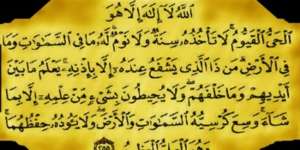 ٱللَّهُ لَآ إِلَٰهَ إِلَّا هُوَ
ٱلْحَىُّ ٱلْقَيُّومُ ۚ لَا تَأْخُذُهُۥ سِنَةٌ وَلَا نَوْمٌ ۚ لَّهُۥ مَا فِى ٱلسَّمَٰوَٰتِ وَمَا
فِى ٱلْأَرْضِ ۗ مَن ذَا ٱلَّذِى يَشْفَعُ عِندَهُۥٓ إِلَّا بِإِذْنِهِۦ ۚ يَعْلَمُ مَا بَيْنَ
أَيْدِيهِمْ وَمَا خَلْفَهُمْ ۖ وَلَا يُحِيطُونَ بِشَىْءٍ مِّنْ عِلْمِهِۦٓ إِلَّا بِمَا
شَآءَ ۚ وَسِعَ كُرْسِيُّهُ ٱلسَّمَٰوَٰتِ وَٱلْأَرْضَ ۖ وَلَا يَـُٔودُهُۥ حِفْظُهُمَا ۚ